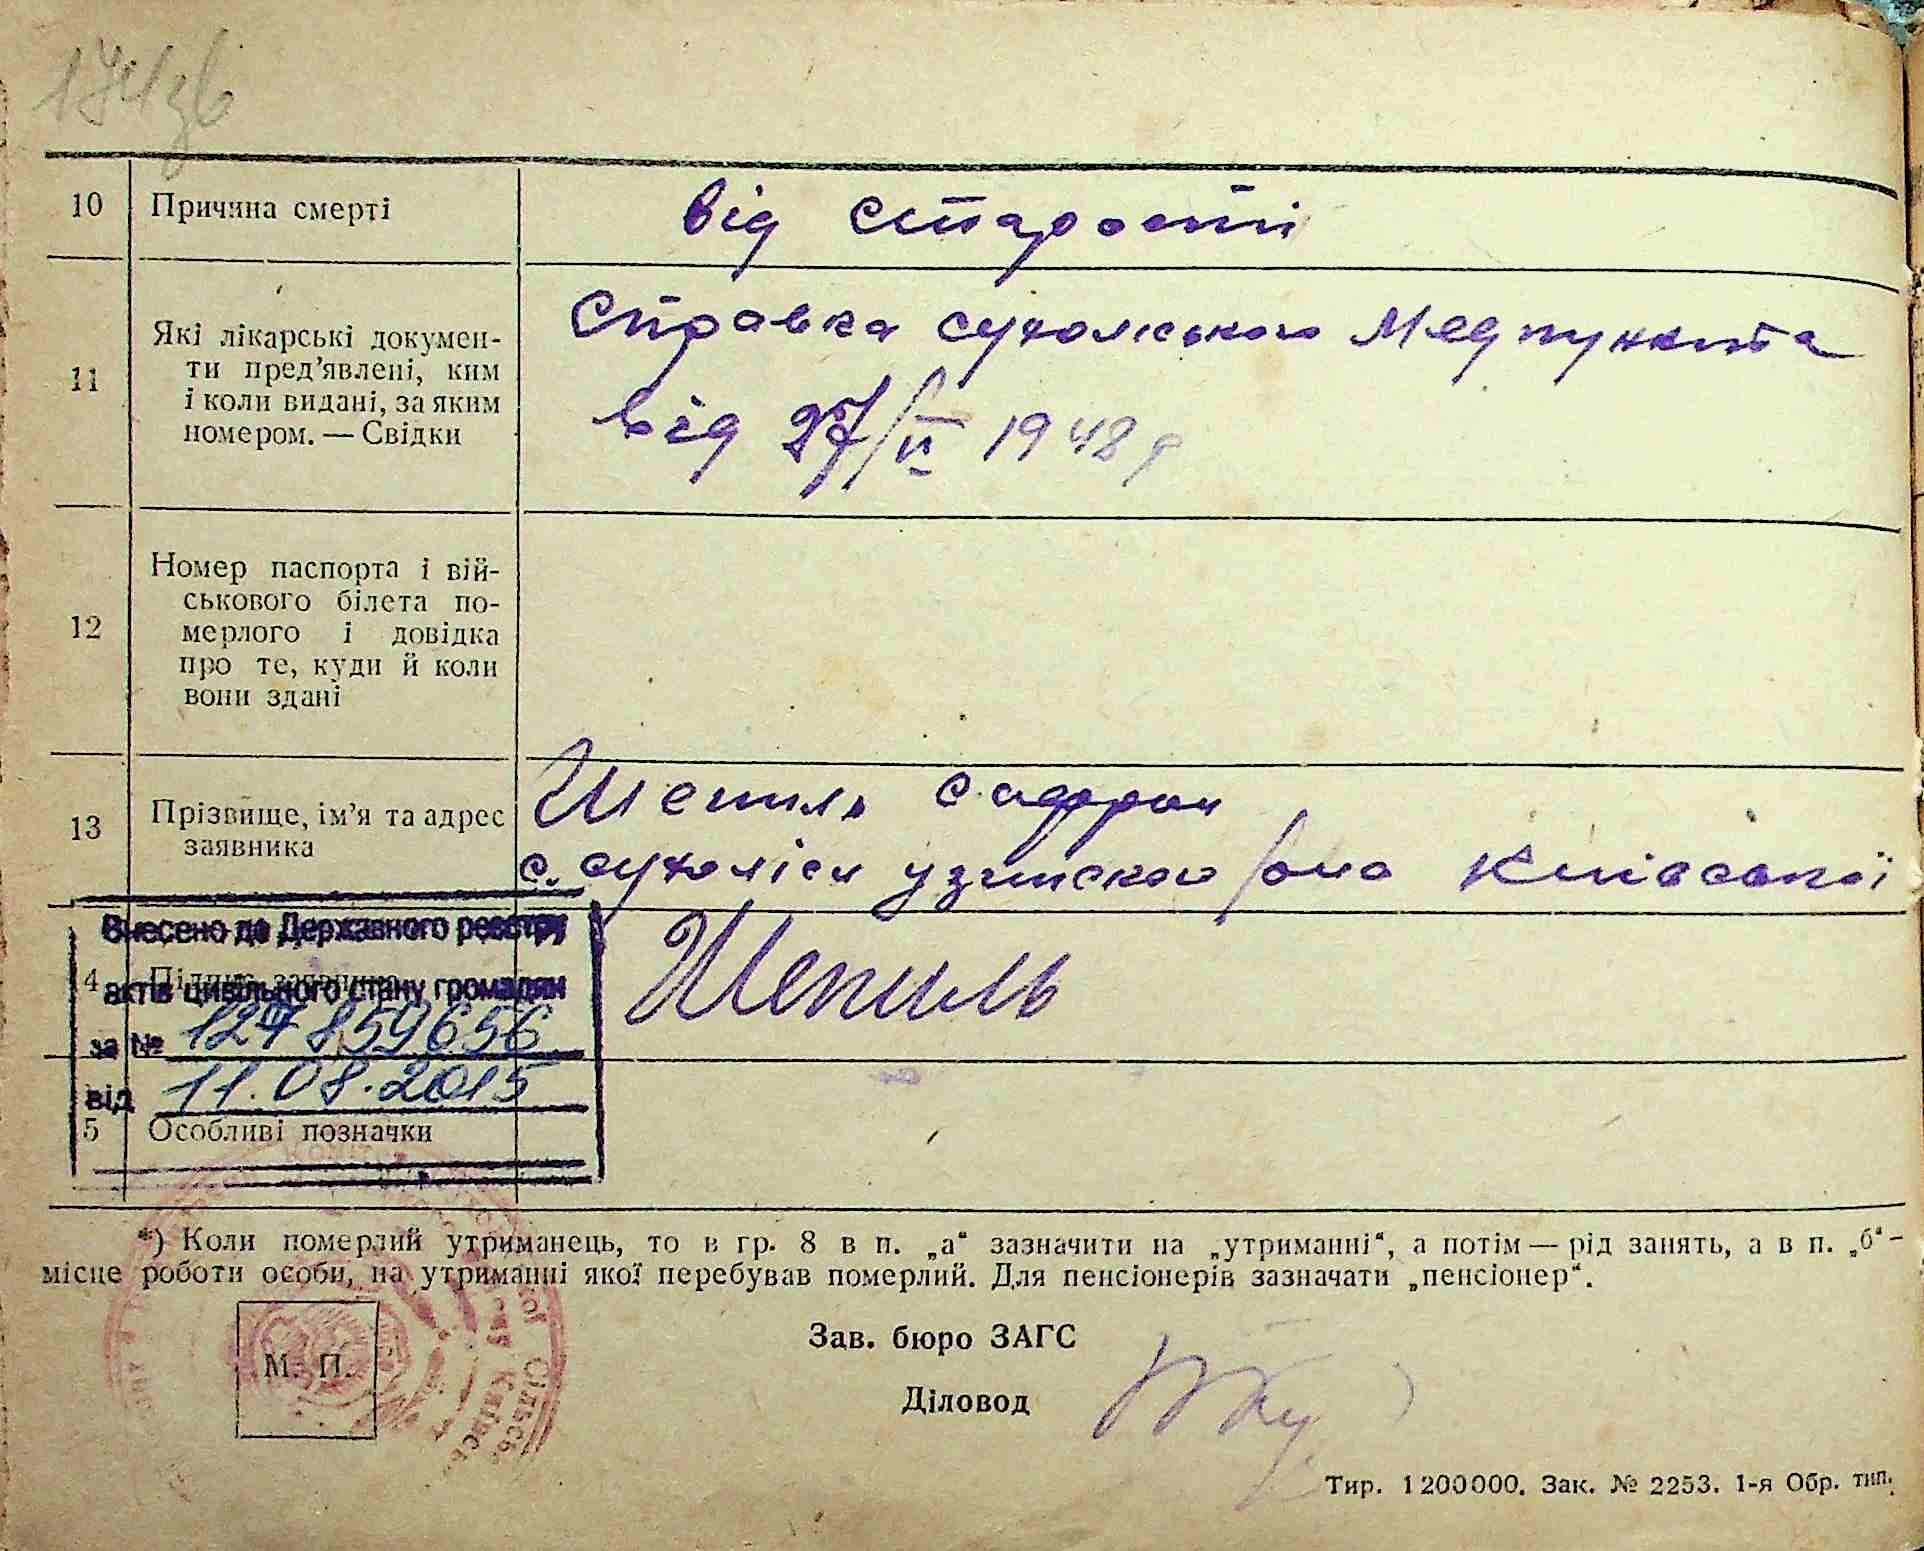 174зв
10 Причина смерті
від старости
11 Які лікарські докумен-
ти пред'явлені, ким
і коли видані, за яким
номером. — Свідки
Справка сухоліського Медпункта
від 27/II 1948 р
12 Номер паспорта і вій-
ськового білета по-
мерлого і довідка
про те, куди й коли
вони здані
13 Прізвище, ім'я та адрес
заявника
Шепиль
с. сухоліси узинского р/она Київської
Внесено до Державного реєстру
4 Підпис заявника
Шепиль
актів цивільного стану громадян
за № 127859656
від 11.08.2015
5 Особливі позначки
*) Коли померлий утриманець, то в гр. 8 в п. „а“ зазначити на „утриманні“, а потім — рід занять, а в п. „б“ –
місце роботи особи, на утриманні якої перебував померлий. Для пенсіонерів зазначати „пенсіонер“.
М. П.
Зав. бюро ЗАГС
Діловод
Тир. 1200000. Зак. № 2253. 1-я Обр. тип.